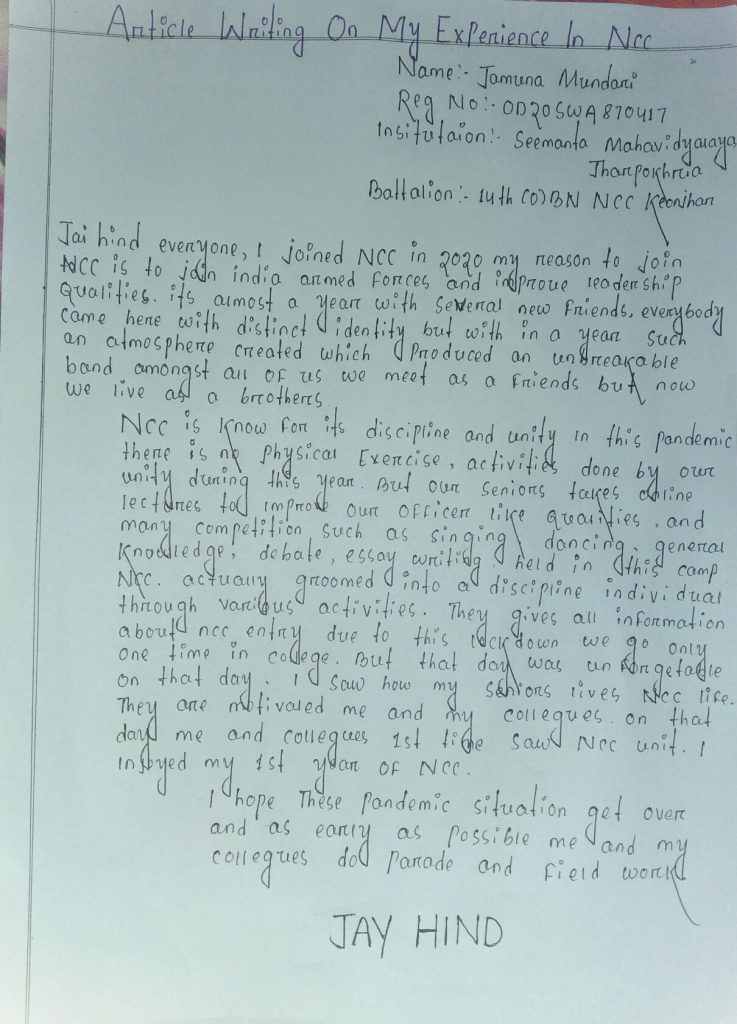 Article Writing On My Experience In Ncc
Name:- Jamuna Mundari
Reg No:- OD20SWA870417
Insitutaion:- Seemanta Mahavidyalaya
Jharpokhria
Battalion:- 14th (O) BN NCC Keonjhar
Jai hind everyone, I joined NCC in 2020 my reason to join
NCC is to join india armed forces and improve leadership
qualities. its almost a year with several new friends, everybody
came here with distinct identity but with in a year such
an atmosphere created which produced an unbreakable
band amongst all of us we meet as a friends but now
we live as a brothers
NCC is know for its discipline and unity in this pandemic
there is no physical Exercise, activities done by our
unity during this year. But our seniors takes online
lectures to improve our officer like qualities, and
many competition such as singing, dancing, general
knowledge, debate, essay writing held in this camp
NCC. actually groomed into a discipline individual
through various activities. They gives all information
about ncc entry due to this lockdown we go only
one time in college. But that day was unforgetable
on that day. I saw how my seniors lives NCC life.
They are motivated me and my collegues. on that
day me and collegues 1st time saw NCC unit. I
injoyed my 1st year of NCC.
I hope These pandemic situation get over
and as early as possible me and my
collegues do parade and field work
JAY HIND